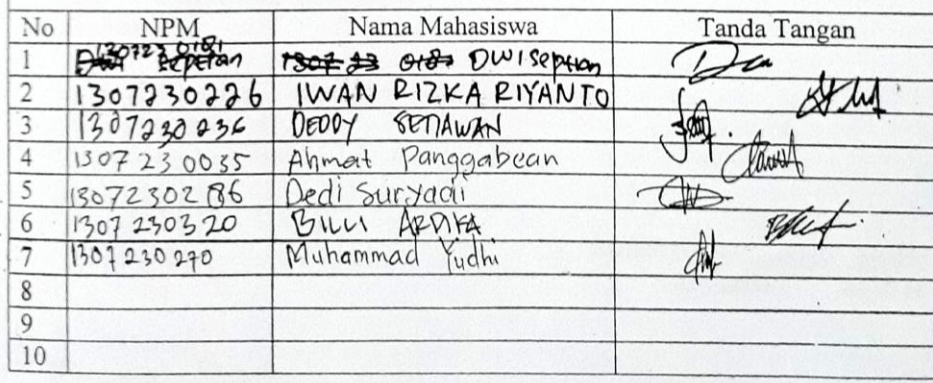 No NPM Nama Mahasiswa Tanda Tangan
1 1307230181 DWI Septian
2 1307230226 IWAN RIZKA RIYANTO
3 1307230236 DEDDY SETIAWAN
4 1307230035 Ahmat Panggabean
5 1307230286 Dedi Suryadi
6 1307230320 BILLI ARDIKA
7 1307230270 Muhammad Yudhi
8
9
10